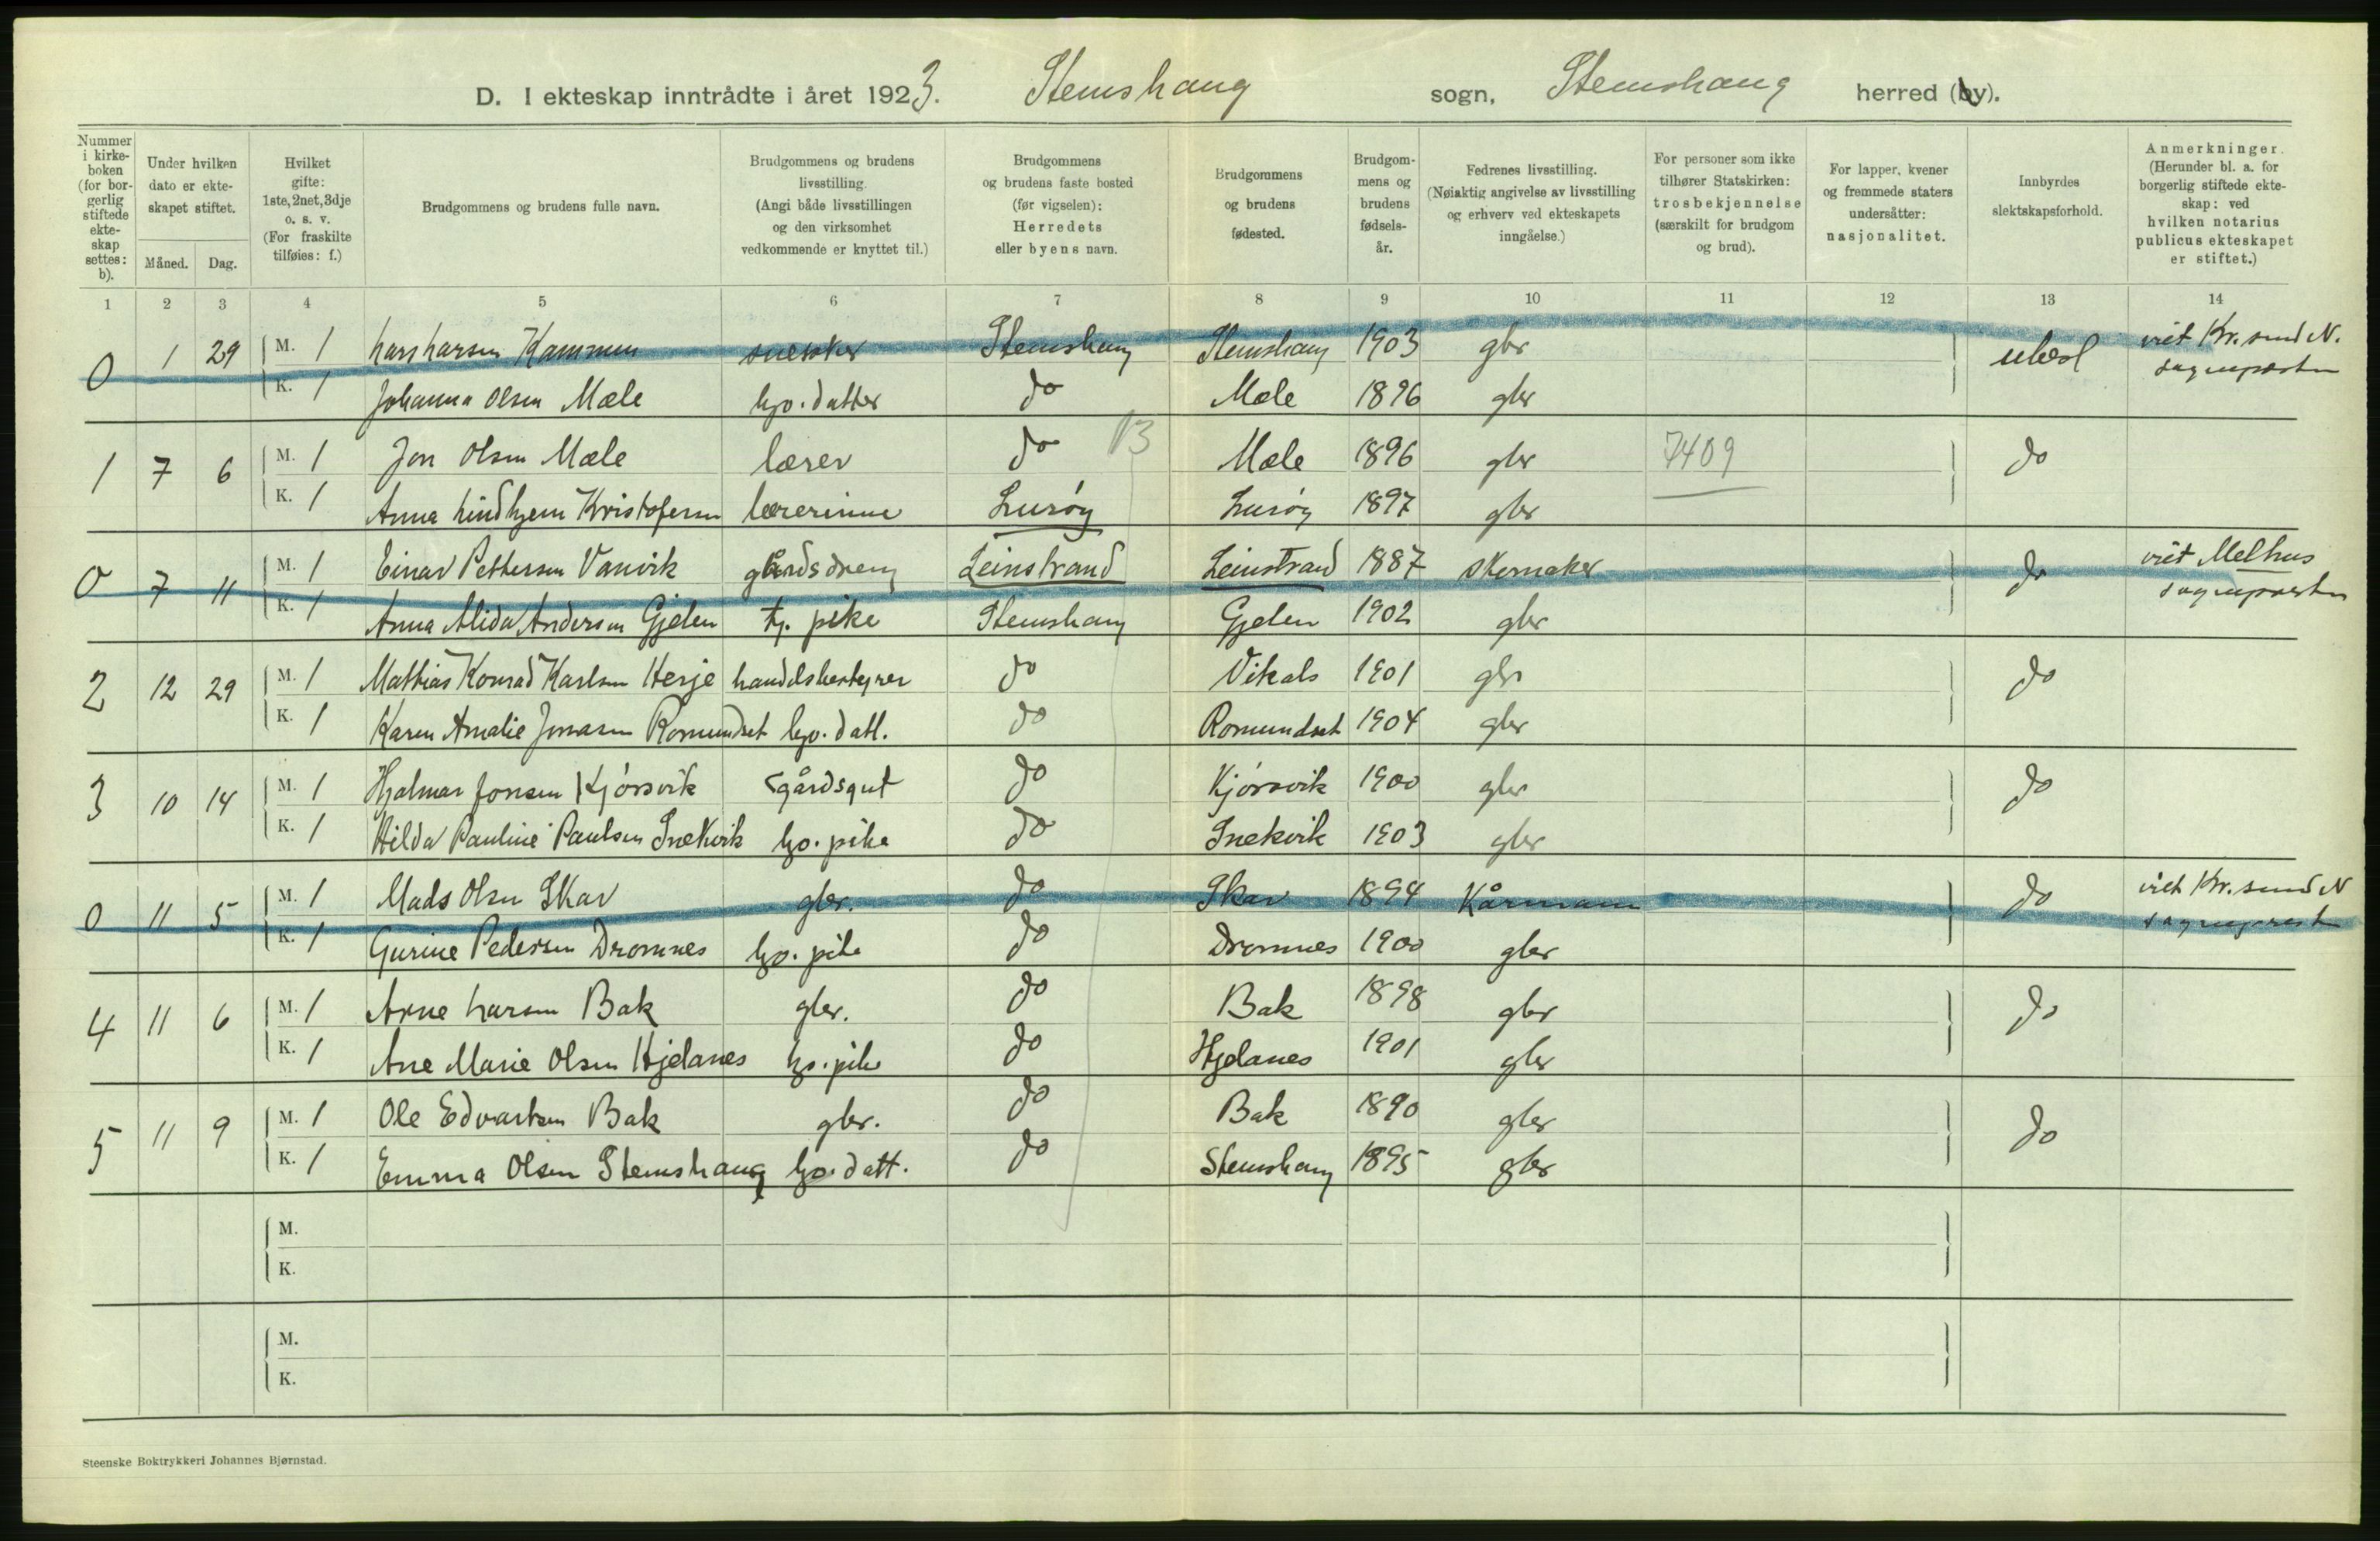 D. I ekteskap inntrådte i året 1923. Stemshaug sogn, Stemshaug herred (by).
Nummer i kirke- boken (for bor- gerlig stiftede ekte- skap settes: b).
Under hvilken dato er ekte- skapet stiftet.
Måned. Dag.
Hvilket gifte: 1ste, 2net, 3dje o. s. v. (For fraskilte tilføies: f.)
Brudgommens og brudens fulle navn.
Brudgommens og brudens livsstilling. (Angi både livsstillingen og den virksomhet vedkommende er knyttet til.)
Brudgommens og brudens faste bosted (før vigselen): Herredets eller byens navn.
Brudgommens og brudens fødested.
Brudgom- mens og brudens fødsels- år.
Fedrenes livsstilling. (Nøiaktig angivelse av livsstilling og erhverv ved ekteskapets inngåelse.)
For personer som ikke tilhører Statskirken: trosbekjennelse (særskilt for brudgom og brud).
For lapper, kvener og fremmede staters undersåtter: nasjonalitet.
Innbyrdes slektskapsforhold.
Anmerkninger. (Herunder bl. a. for borgerlig stiftede ekte- skap: ved hvilken notarius publicus ekteskapet er stiftet.)
1 2 3 4 5 6 7 8 9 10 11 12 13 14
0 1 29 M. 1 Lars Larsen Kammen snekker Stemshaug Stemshaug 1903 gbr ubesl viet Kr.sund N. sognepresten
K. 1 Johanna Olsen Mæle hjv. datter do Mæle 1896 gbr
1 7 6 M. 1 Jon Olsen Mæle lærer do 13 Mæle 1896 gbr 7409 do
K. 1 Anna Lindhjem Kristofersen lærerinne Lurøy Lurøy 1897 gbr
0 7 11 M. 1 Einar Pettersen Vanvik gårdsdreng Leinstrand Leinstrand 1887 skomaker do viet Melhus sognepresten
K. 1 Anna Alida Andersen Gjelen tj. pike Stemshaug Gjelen 1902 gbr
2 12 29 M. 1 Mathias Konrad Karlsen Herje handelsbestyrer do Vikals 1901 gbr do
K. 1 Karen Amalie Jonasen Romundset hjv. datt. do Romundset 1904 gbr
3 10 14 M. 1 Hjalmar Jonsen Kjørsvik gårdsgut do Kjørsvik 1900 gbr do
K. 1 Hilda Pauline Paulsen Snekvik hjv. pike do Snekvik 1903 gbr
0 11 5 M. 1 Mads Olsen Skar gbr. do Skar 1894 Kårmann do viet Kr.sund N sogneprest
K. 1 Gurine Pedersen Dromnes hjv. pike do Dromnes 1900 gbr
4 11 6 M. 1 Arne Larsen Bak gbr. do Bak 1898 gbr do
K. 1 Ane Marie Olsen Hjelanes hjv. pike do Hjelanes 1901 gbr
5 11 9 M. 1 Ole Edvartsen Bak gbr. do Bak 1890 gbr do
K. 1 Emma Olsen Stemshaug hjv. datt. do Stemshaug 1895 gbr
M.
K.
M.
K.
Steenske Boktrykkeri Johannes Bjørnstad.